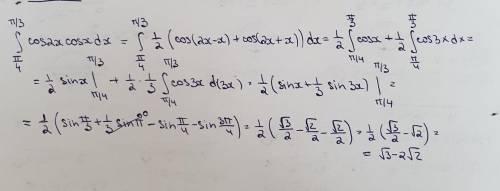 ∫_{π/4}^{π/3} cos2x cosx dx = ∫_{π/4}^{π/3} 1/2 (cos(2x-x) + cos(2x+x)) dx = 1/2 ∫_{π/4}^{π/3} cosx + 1/2 ∫_{π/4}^{π/3} cos3x dx =
= 1/2 sinx |_{π/4}^{π/3} + 1/2 · 1/3 ∫_{π/4}^{π/3} cos3x d(3x) = 1/2 (sinx + 1/3 sin3x) |_{π/4}^{π/3} =
= 1/2 (sin π/3 + 1/3 sinπ^0 - sin π/4 - sin 3π/4) = 1/2 (√3/2 - √2/2 - √2/2) = 1/2 (√3/2 - √2) =
= √3 - 2√2